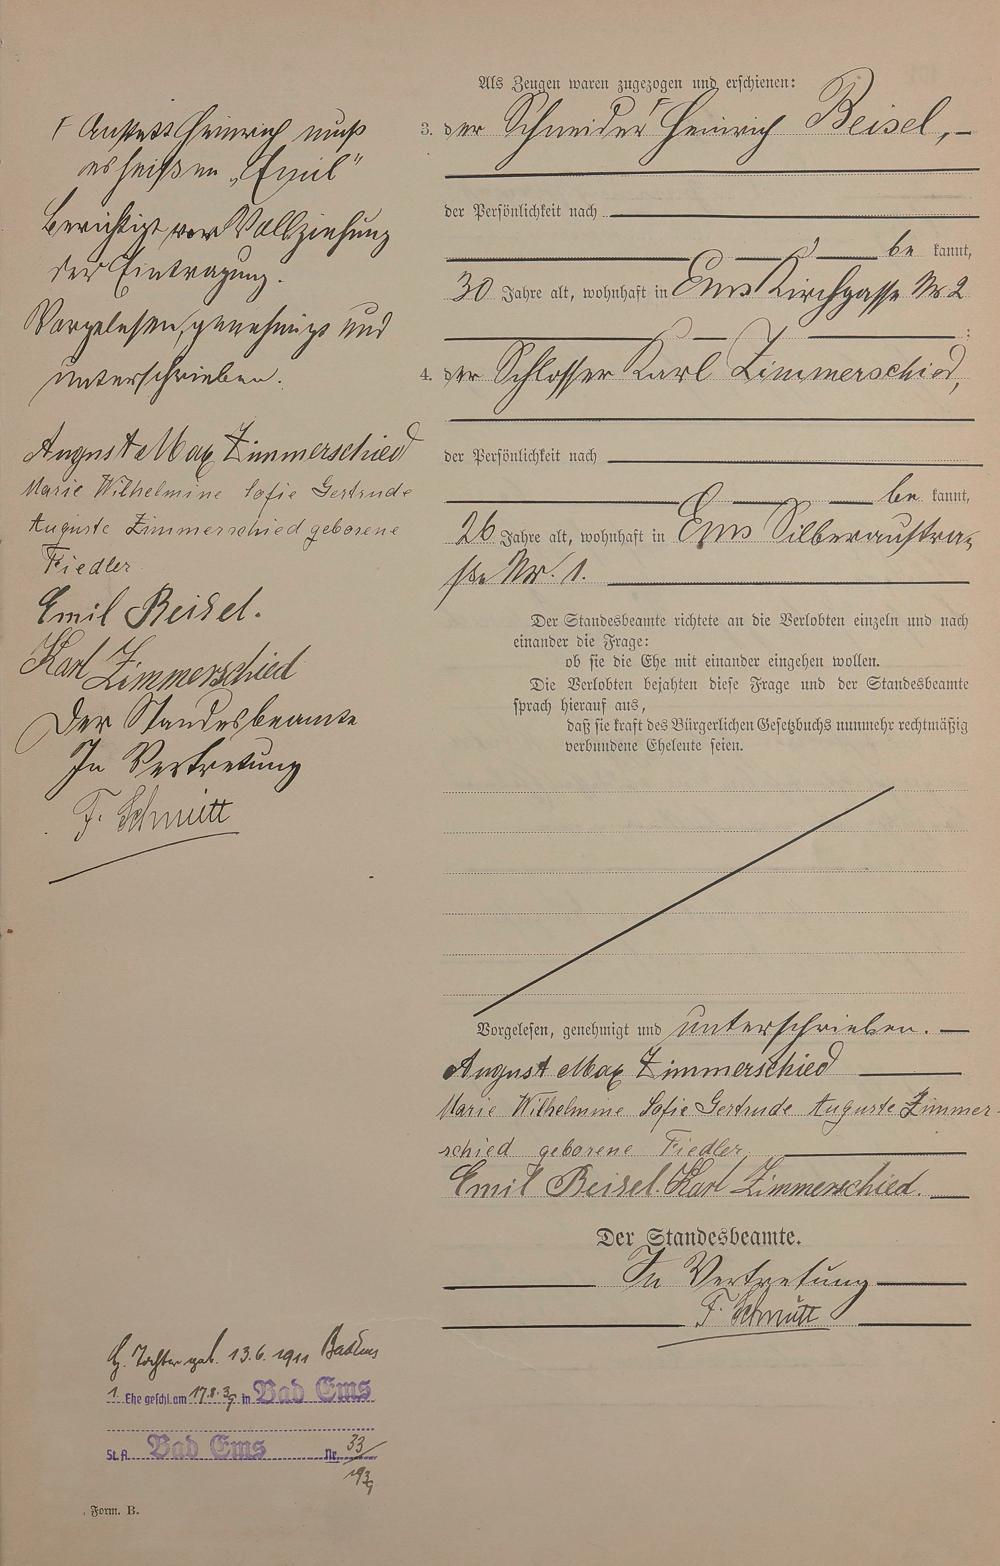 Als Zeugen waren zugezogen und erschienen:
3. der Schneider Ⱶ Heinrich Beisel, —
der Persönlichkeit nach
be kannt,
30 Jahre alt, wohnhaft in Ems Kirchgasse Nr 2
;
4. der Schlosser Karl Zimmerschied,
der Persönlichkeit nach
be kannt,
26 Jahre alt, wohnhaft in Ems Silberaustra-
ße Nr. 1.
Der Standesbeamte richtete an die Verlobten einzeln und nach
einander die Frage:
ob sie die Ehe mit einander eingehen wollen.
Die Verlobten bejahten diese Frage und der Standesbeamte
sprach hierauf aus,
daß sie kraft des Bürgerlichen Gesetzbuchs nunmehr rechtmäßig
verbundene Eheleute seien.
Vorgelesen, genehmigt und unterschrieben. —
August Max Zimmerschied
Marie Wilhelmine Sofie Gertrude Auguste Zimmer-
schied geborene Fiedler
Emil Beisel. Karl Zimmerschied.
Der Standesbeamte.
In Vertretung
F. Schmitt
Ⱶ Anstatt Heinrich muß
es heißen „Emil"
Berichtigt vor Vollziehung
der Eintragung.
Vorgelesen, genehmigt und
unterschrieben.
August Max Zimmerschied
Marie Wilhelmine Sofie Gertrude
Auguste Zimmerschied geborene
Fiedler
Emil Beisel.
Karl Zimmerschied
Der Standesbeamte
In Vertretung
F. Schmitt
Tochter geb. 13.6.1911 Bad Ems
1. Ehe geschl. am 17.8.39 in Bad Ems
St. A. Bad Ems Nr. 33/1939
Form. B.